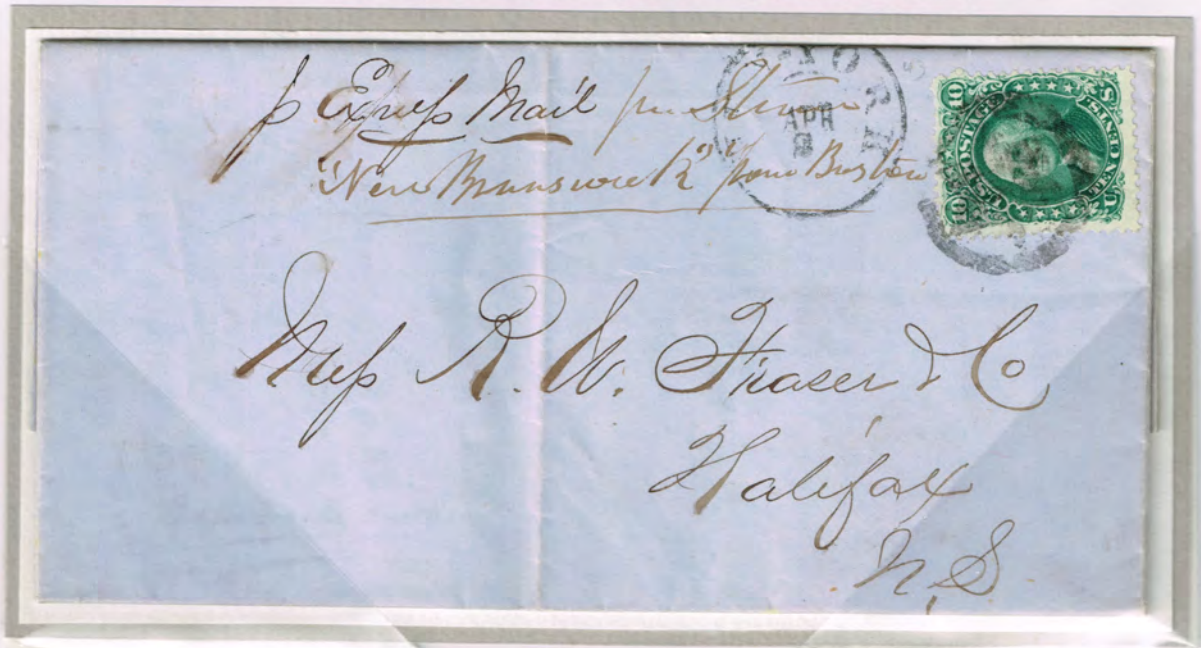 p Express Mail per Steamer
"New Brunswick" from Boston
YORK
APR
8
U.S. POSTAGE
TEN CENTS
10
10
U
S
Mess R. W. Fraser & Co
Halifax
N.S.